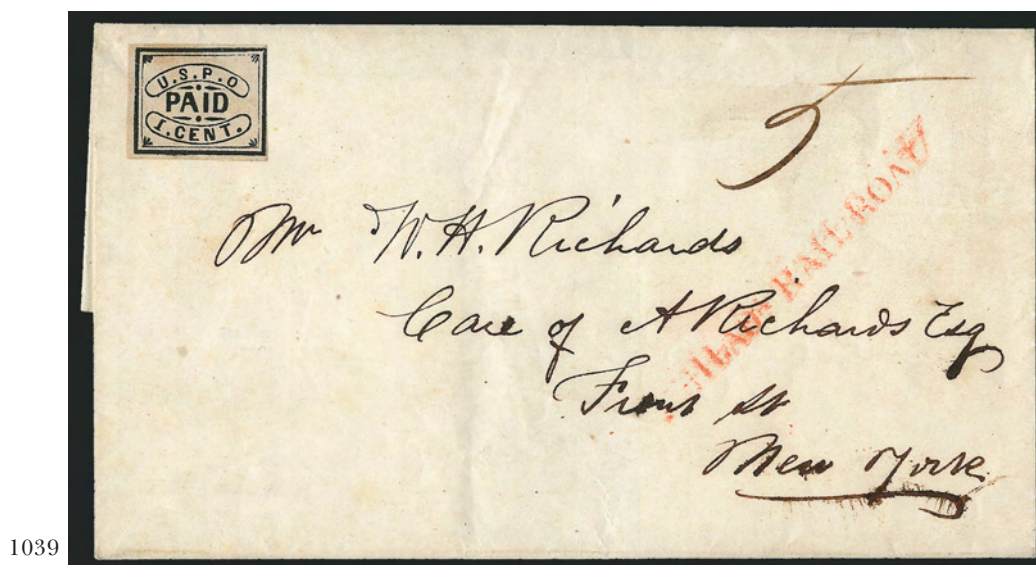 U.S.P.O
PAID
1.CENT.
5
RAILROAD
Mr W.H. Richards
Care of A Richards Esq
Front St
New York
1039